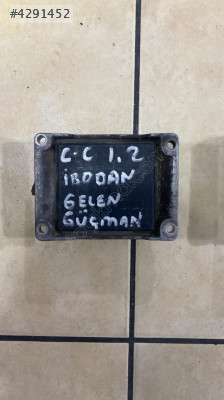 #4291452
C-C 1.2
İBODAN
GELEN
GÜÇMAN